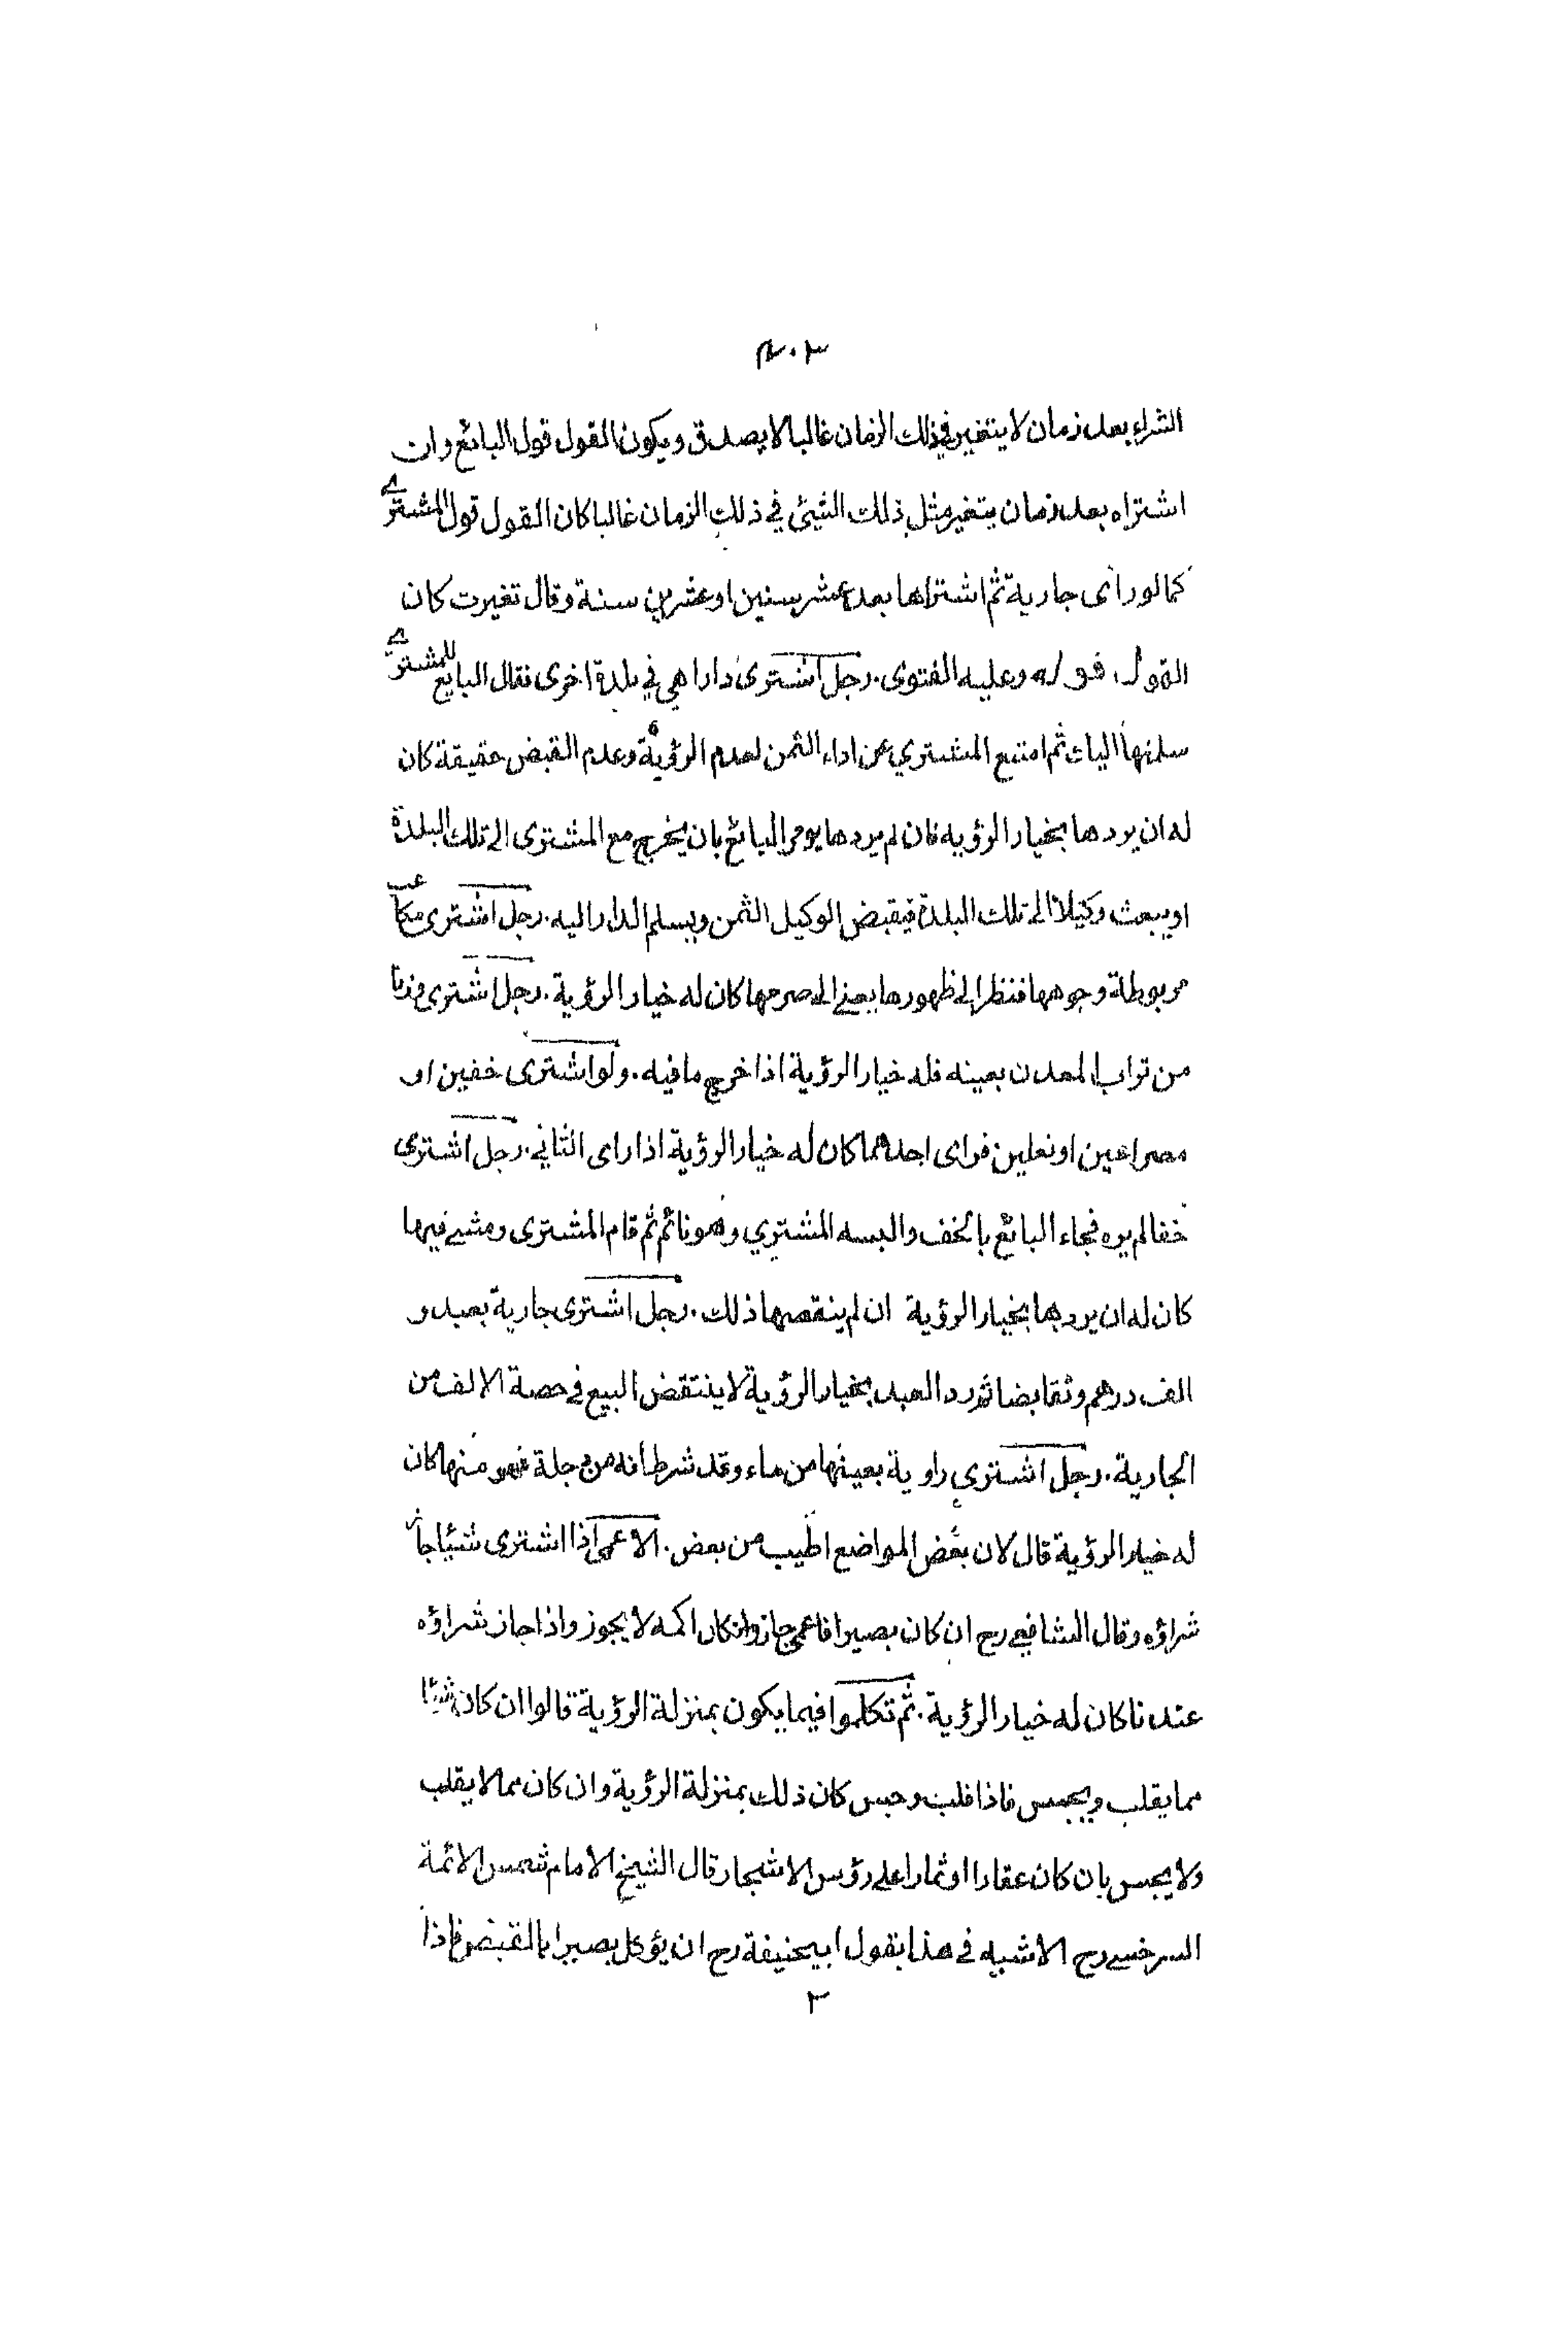 ٣٠٢
الشراء بعد زمان لا يتغير في ذلك الزمان غالبا لا يصدق ويكون القول قول البائع وان
اشتراه بعد زمان يتغير مثل ذلك الشيئ في ذلك الزمان غالبا كان القول قول المشتري
كما لو رأى جارية ثم اشتراها بعد عشر سنين او عشرين سنة وقال تغيرت كان
القول قوله وعليه الفتوى . رجل اشترى دارا هي في بلدة اخرى فقال البايع للمشتري
سلمتها اليك ثم امتنع المشتري عن اداء الثمن لعدم الرؤية وعدم القبض حقيقة كان
له ان يردها بخيار الرؤية فان لم يردها يومر البائع بان يخرج مع المشترى الى تلك البلدة
او يبعث وكيلا الى تلك البلدة فيقبض الوكيل الثمن ويسلم الدار اليه . رجل اشترى
مربوطة وجوهها فنظر الى ظهورها يعني الى صرمها كان له خيار الرؤية . رجل اشترى وزنا
من تراب المعدن بعينه فله خيار الرؤية اذا خرج ما فيه . ولو اشترى خفين او
مصراعين او نعلين فراى احدهما كان له خيار الرؤية اذا راى الثاني . رجل اشترى
خفا لم يره فجاء البائع بالخف والبسه المشتري وهو نائم ثم قام المشترى ومشے فيها
كان له ان يردها بخيار الرؤية ان لم ينقصها ذلك . رجل اشترى جارية بعبد و
الف درهم وتقابضا ثم رد العبد بخيار الرؤية لا ينتقض البيع في حصة الالف من
الجارية . رجل اشترى راوية بعينها من ماء وقد شرط انه من دجلة فهو منها كان
له خيار الرؤية قال لان بعض المواضع اطيب من بعض . الاعمى اذا اشترى شيئا جاز
شراؤه وقال الشافعي رح ان كان بصيرا فاعمى جاز وان كان اكمه لا يجوز واذا جاز شراؤه
عندنا كان له خيار الرؤية . ثم تكلموا فيما يكون بمنزلة الرؤية قالوا ان كان شيئا
مما يقلب ويجس فاذا قلب وجس كان ذلك بمنزلة الرؤية وان كان مما لا يقلب
ولا يجس بان كان عقارا او ثمارا على رؤس الاشجار قال الشيخ الامام شمس الائمة
السرخسے رح الاشبه في هذا بقول ابيحنيفة رح ان يؤكل بصيرا بالقبض فاذا
٢